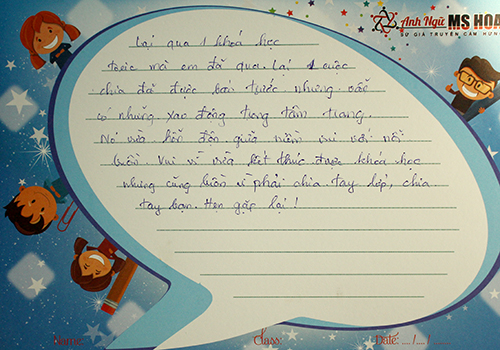 Anh Ngữ MS HOA
SỨ GIẢ TRUYỀN CẢM HỨNG
Lại qua 1 khoá học
toeic mà em đã qua. Lại 1 cuộc
chia đã được báo trước nhưng vẫn
có những xao động trong tâm trạng.
Nó vừa hỗn độn giữa niềm vui với nỗi
buồn. Vui vì vừa kết thúc được khoá học
nhưng cũng buồn vì phải chia tay lớp, chia
tay bạn. Hẹn gặp lại!
Name:
Class:
Date: .../.../...